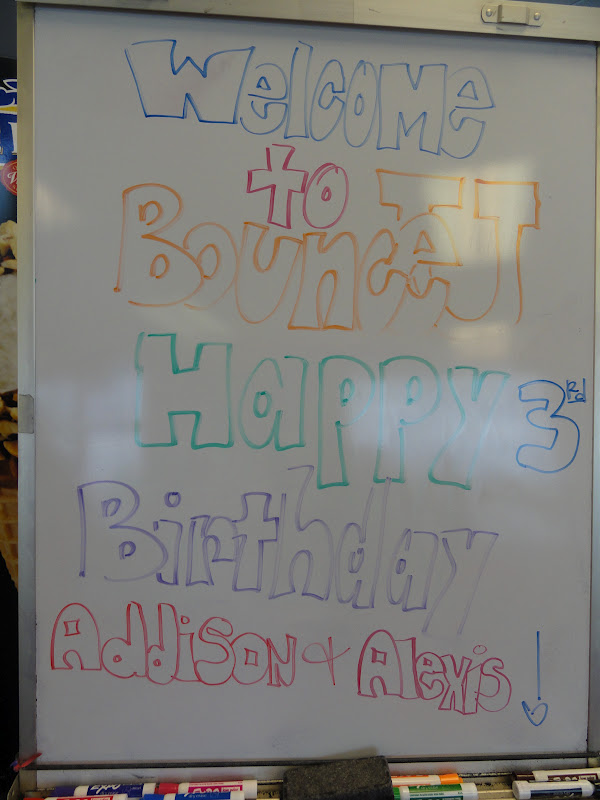 Welcome
to
BounceTJ
Happy 3rd
Birthday
Addison & Alexis
EXPO